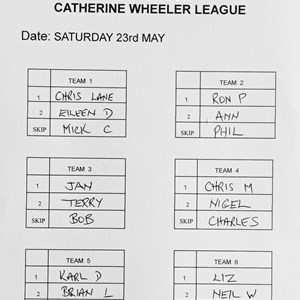 CATHERINE WHEELER LEAGUE
Date: SATURDAY 23rd MAY
TEAM 1
1 CHRIS LANE
2 EILEEN D
SKIP MICK C
TEAM 2
1 RON P
2 ANN
SKIP PHIL
TEAM 3
1 JAN
2 TERRY
SKIP BOB
TEAM 4
1 CHRIS M
2 NIGEL
SKIP CHARLES
TEAM 5
1 KARL D
2 BRIAN L
TEAM 6
1 LIZ
2 NEIL W